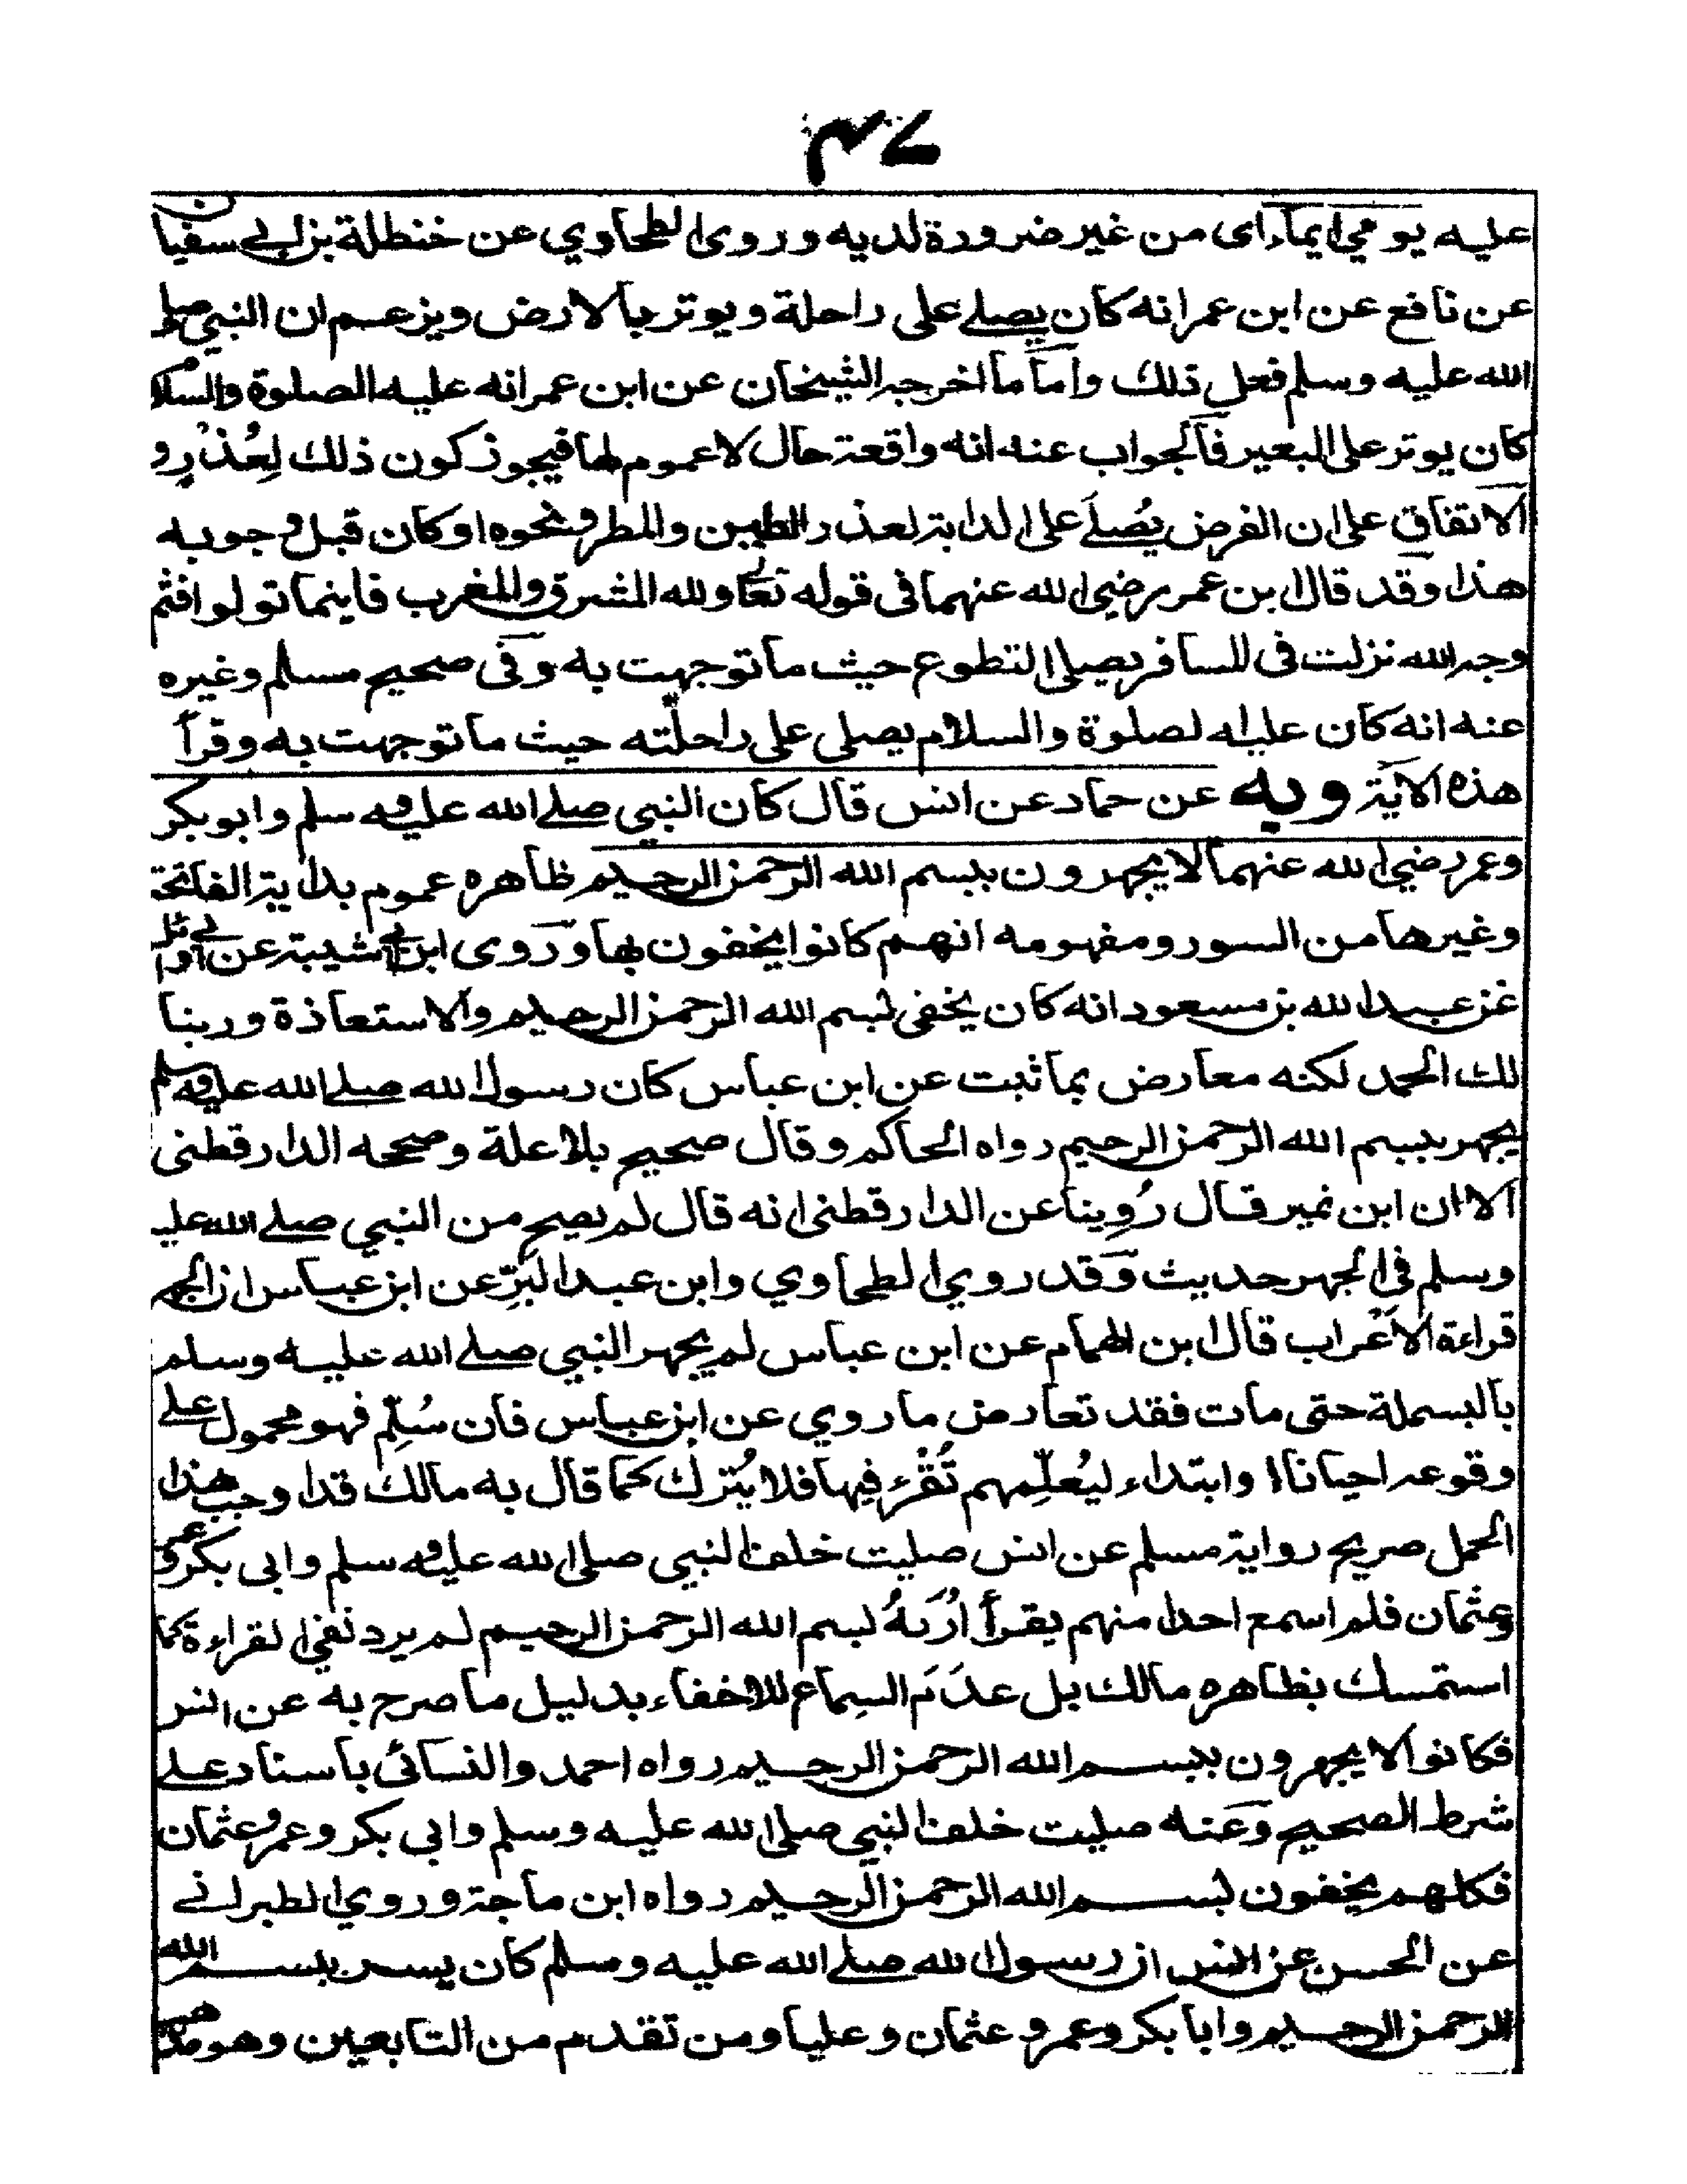 ٣٤
عليه يومي ايماء اى من غير ضرورة لديه وروى الطحاوي عن خنظلة بن ابي سفيان
عن نافع عن ابن عمر انه كان يصلے على راحلة ويوتر بالارض ويزعم ان النبي صلے
الله عليه وسلم فعل ذلك واما ما اخرجه الشيخان عن ابن عمر انه عليه الصلوة والسلام
كان يوتر على البعير فالجواب عنه انه واقعة حال لا عموم لها فيجوز كون ذلك لِعُذْرٍ و
الاتفاق على ان الفرض يُصلے على الدابة لعذر الطين والمطر ونحوه او كان قبل وجوبه
هذا وقد قال ابن عمر رضي الله عنهما فى قوله تعالى ولله المشرق والمغرب فاينما تولوا فثم
وجه الله نزلت فى المسافر يصلى التطوع حيث ما توجهت به وفى صحيح مسلم وغيره
عنه انه كان عليه الصلوة والسلام يصلى على راحلته حيث ما توجهت به وقرأ
هذه الاية وبه عن حماد عن انس قال كان النبي صلے الله عليه وسلم وابو بكر
وعمر رضي الله عنهما لا يجهرون ببسم الله الرحمن الرحيم ظاهره عموم بداية الفاتحة
وغيرها من السور ومفهومه انهم كانوا يخفون بها وروى ابن ابي شيبة عن ابي وائل
عن عبد الله بن مسعود انه كان يخفى لبسم الله الرحمن الرحيم والاستعاذة وربنا
لك الحمد لكنه معارض بما ثبت عن ابن عباس كان رسول الله صلے الله عليه وسلم
يجهر ببسم الله الرحمن الرحيم رواه الحاكم وقال صحيح بلا علة وصححه الدارقطنى
الا ان ابن نمير قال رُوينا عن الدارقطنى انه قال لم يصح من النبي صلے الله عليه
وسلم فى الجهر حديث وقد روي الطحاوي وابن عبد البَرِّ عن ابن عباس ان الجهر
قراءة الاَعْراب قال ابن الهمام عن ابن عباس لم يجهر النبي صلے الله عليه وسلم
بالبسملة حتى مات فقد تعارض ما روي عن ابن عباس فان سُلِّم فهو محمول علے
وقوعه احيانا او ابتداء ليُعلِّمهم تُقْرء فيها فلا يُترك كما قال به مالك قد اوجب هذا
الحمل صريح رواية مسلم عن انس صليت خلف النبي صلى الله عليه وسلم وابى بكر وعمر
وعثمان فلم اسمع احدا منهم يقرأ لبسم الله الرحمن الرحيم لم يرد نفي القراءة كما
استمسك بظاهره مالك بل عدَمَ السماع للاخفاء بدليل ما صرح به عن انس
فكانوا لا يجهرون ببسم الله الرحمن الرحيم رواه احمد والنسائى باسناد علے
شرط الصحيح وعنه صليت خلف النبي صلى الله عليه وسلم وابي بكر وعمر وعثمان
فكلهم يخفون لبسم الله الرحمن الرحيم رواه ابن ماجة وروي الطبرانے
عن الحسن عن انس ان رسول الله صلے الله عليه وسلم كان يسر ببسم الله
الرحمن الرحيم وابا بكر وعمر و عثمان وعليا ومن تقدم من التابعين وهو مذهب